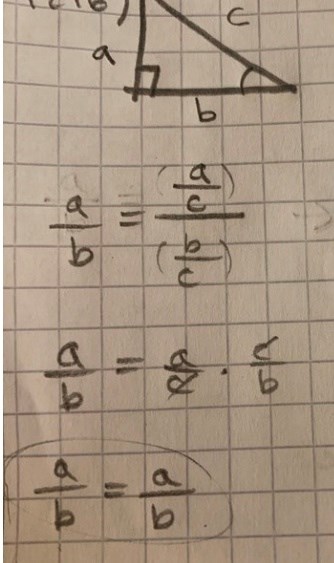 c
a
b
a/b = (a/c)/(b/c)
a/b = a/c · c/b
a/b = a/b